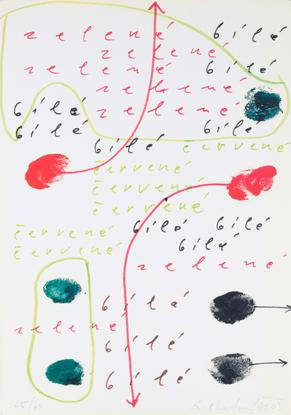 zelené bílé
zelené
zelené bílé
zelené
bílé zelené
bílé bílé
bílé červené
červené
červené
červené
červené bílé bílé
červené bílé
zelené
bílé
zelené
bílé
bílé